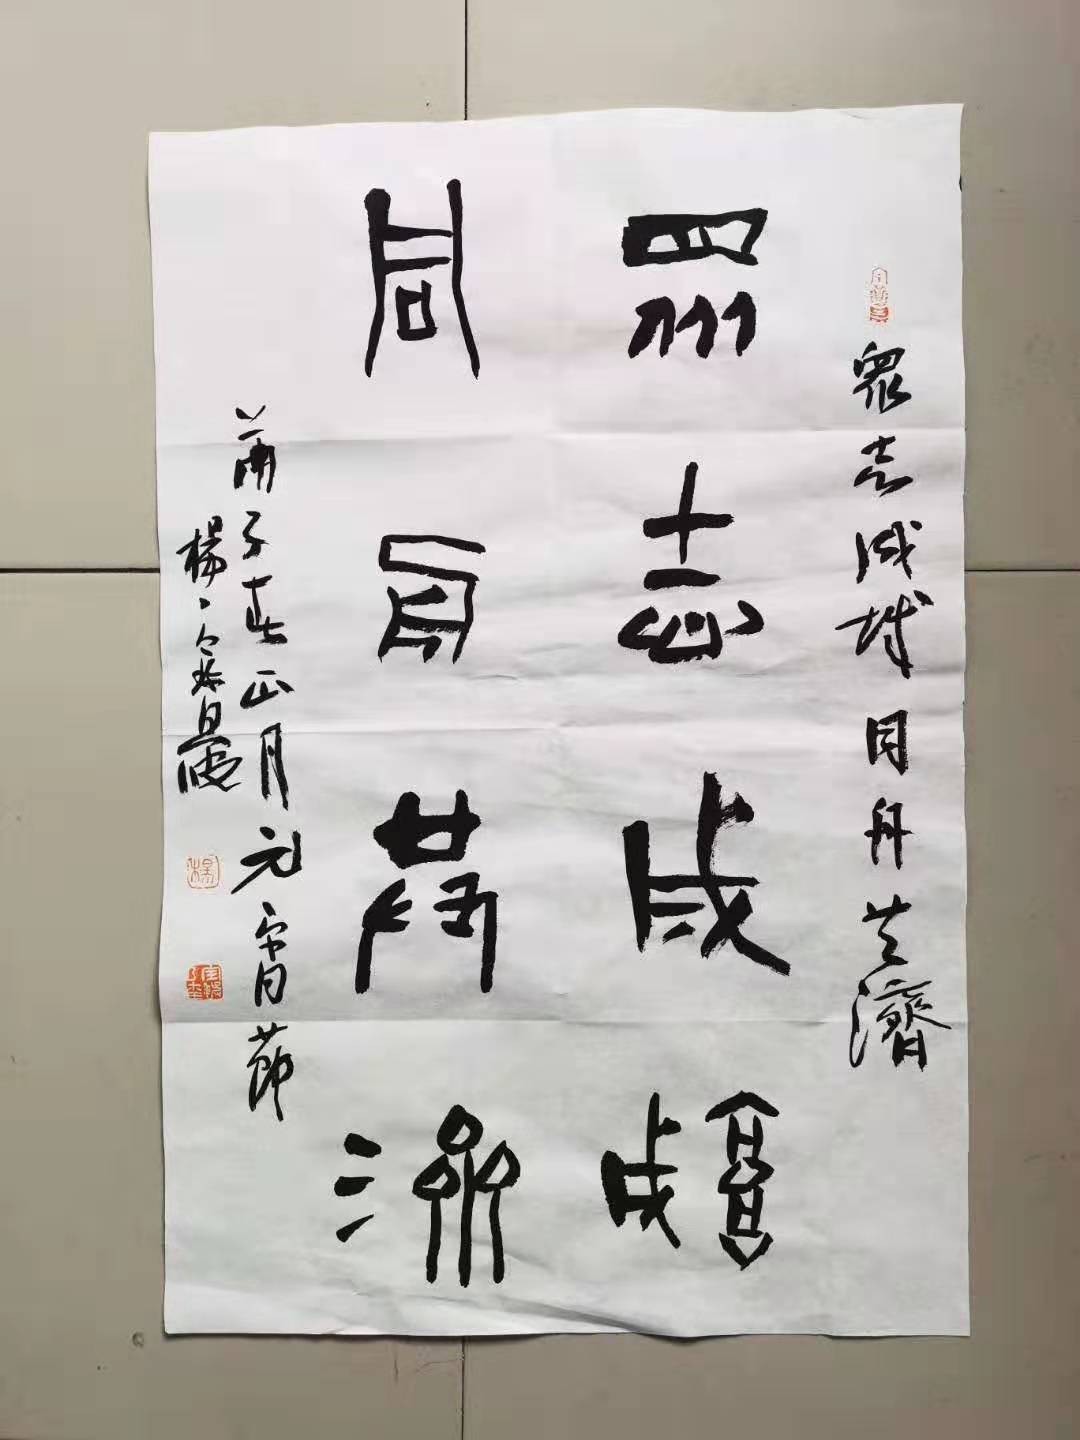 眾志成城同舟共濟
眾志成城
同舟共濟
庚子春正月元宵節
楊